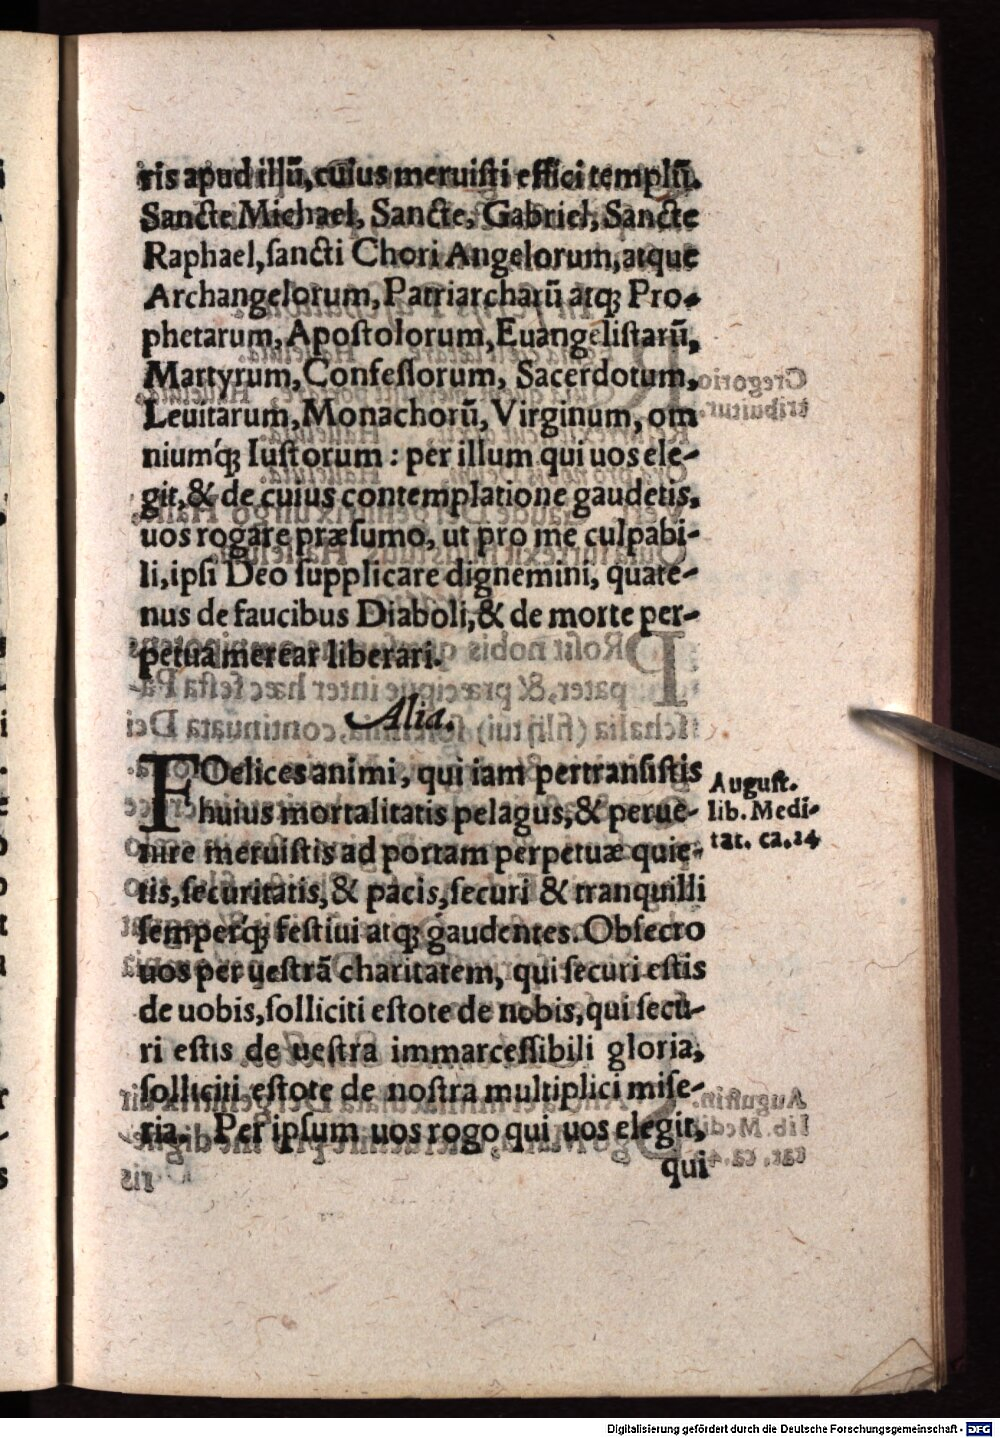 ris apud illũ, cuius meruiſti effici templũ.
Sancte Michael, Sancte, Gabriel, Sancte
Raphael, ſancti Chori Angelorum, atque
Archangelorum, Patriarcharũ atq; Pro-
phetarum, Apoſtolorum, Euangeliſtarũ,
Martyrum, Confeſſorum, Sacerdotum,
Leuitarum, Monachorũ, Virginum, om
niumq́; Iuſtorum : per illum qui uos ele-
git, & de cuius contemplatione gaudetis,
uos rogare præſumo, ut pro me culpabi-
li, ipſi Deo ſupplicare dignemini, quate-
nus de faucibus Diaboli, & de morte per-
petua merear liberari.
Alia.
FOelices animi, qui iam pertransiſtis
huius mortalitatis pelagus, & perue-
nire meruiſtis ad portam perpetuæ quie-
tis, ſecuritatis, & pacis, ſecuri & tranquilli
ſemperq́; feſtiui atq; gaudentes. Obſecro
uos per ueſtrã charitatem, qui ſecuri eſtis
de uobis, ſolliciti eſtote de nobis, qui ſecu-
ri eſtis de ueſtra immarceſſibili gloria,
ſolliciti eſtote de noſtra multiplici miſe-
ria. Per ipſum uos rogo qui uos elegit,
qui
Auguſt.
lib. Medi-
tat. ca. 24
Digitalisierung gefördert durch die Deutsche Forschungsgemeinschaft - DFG